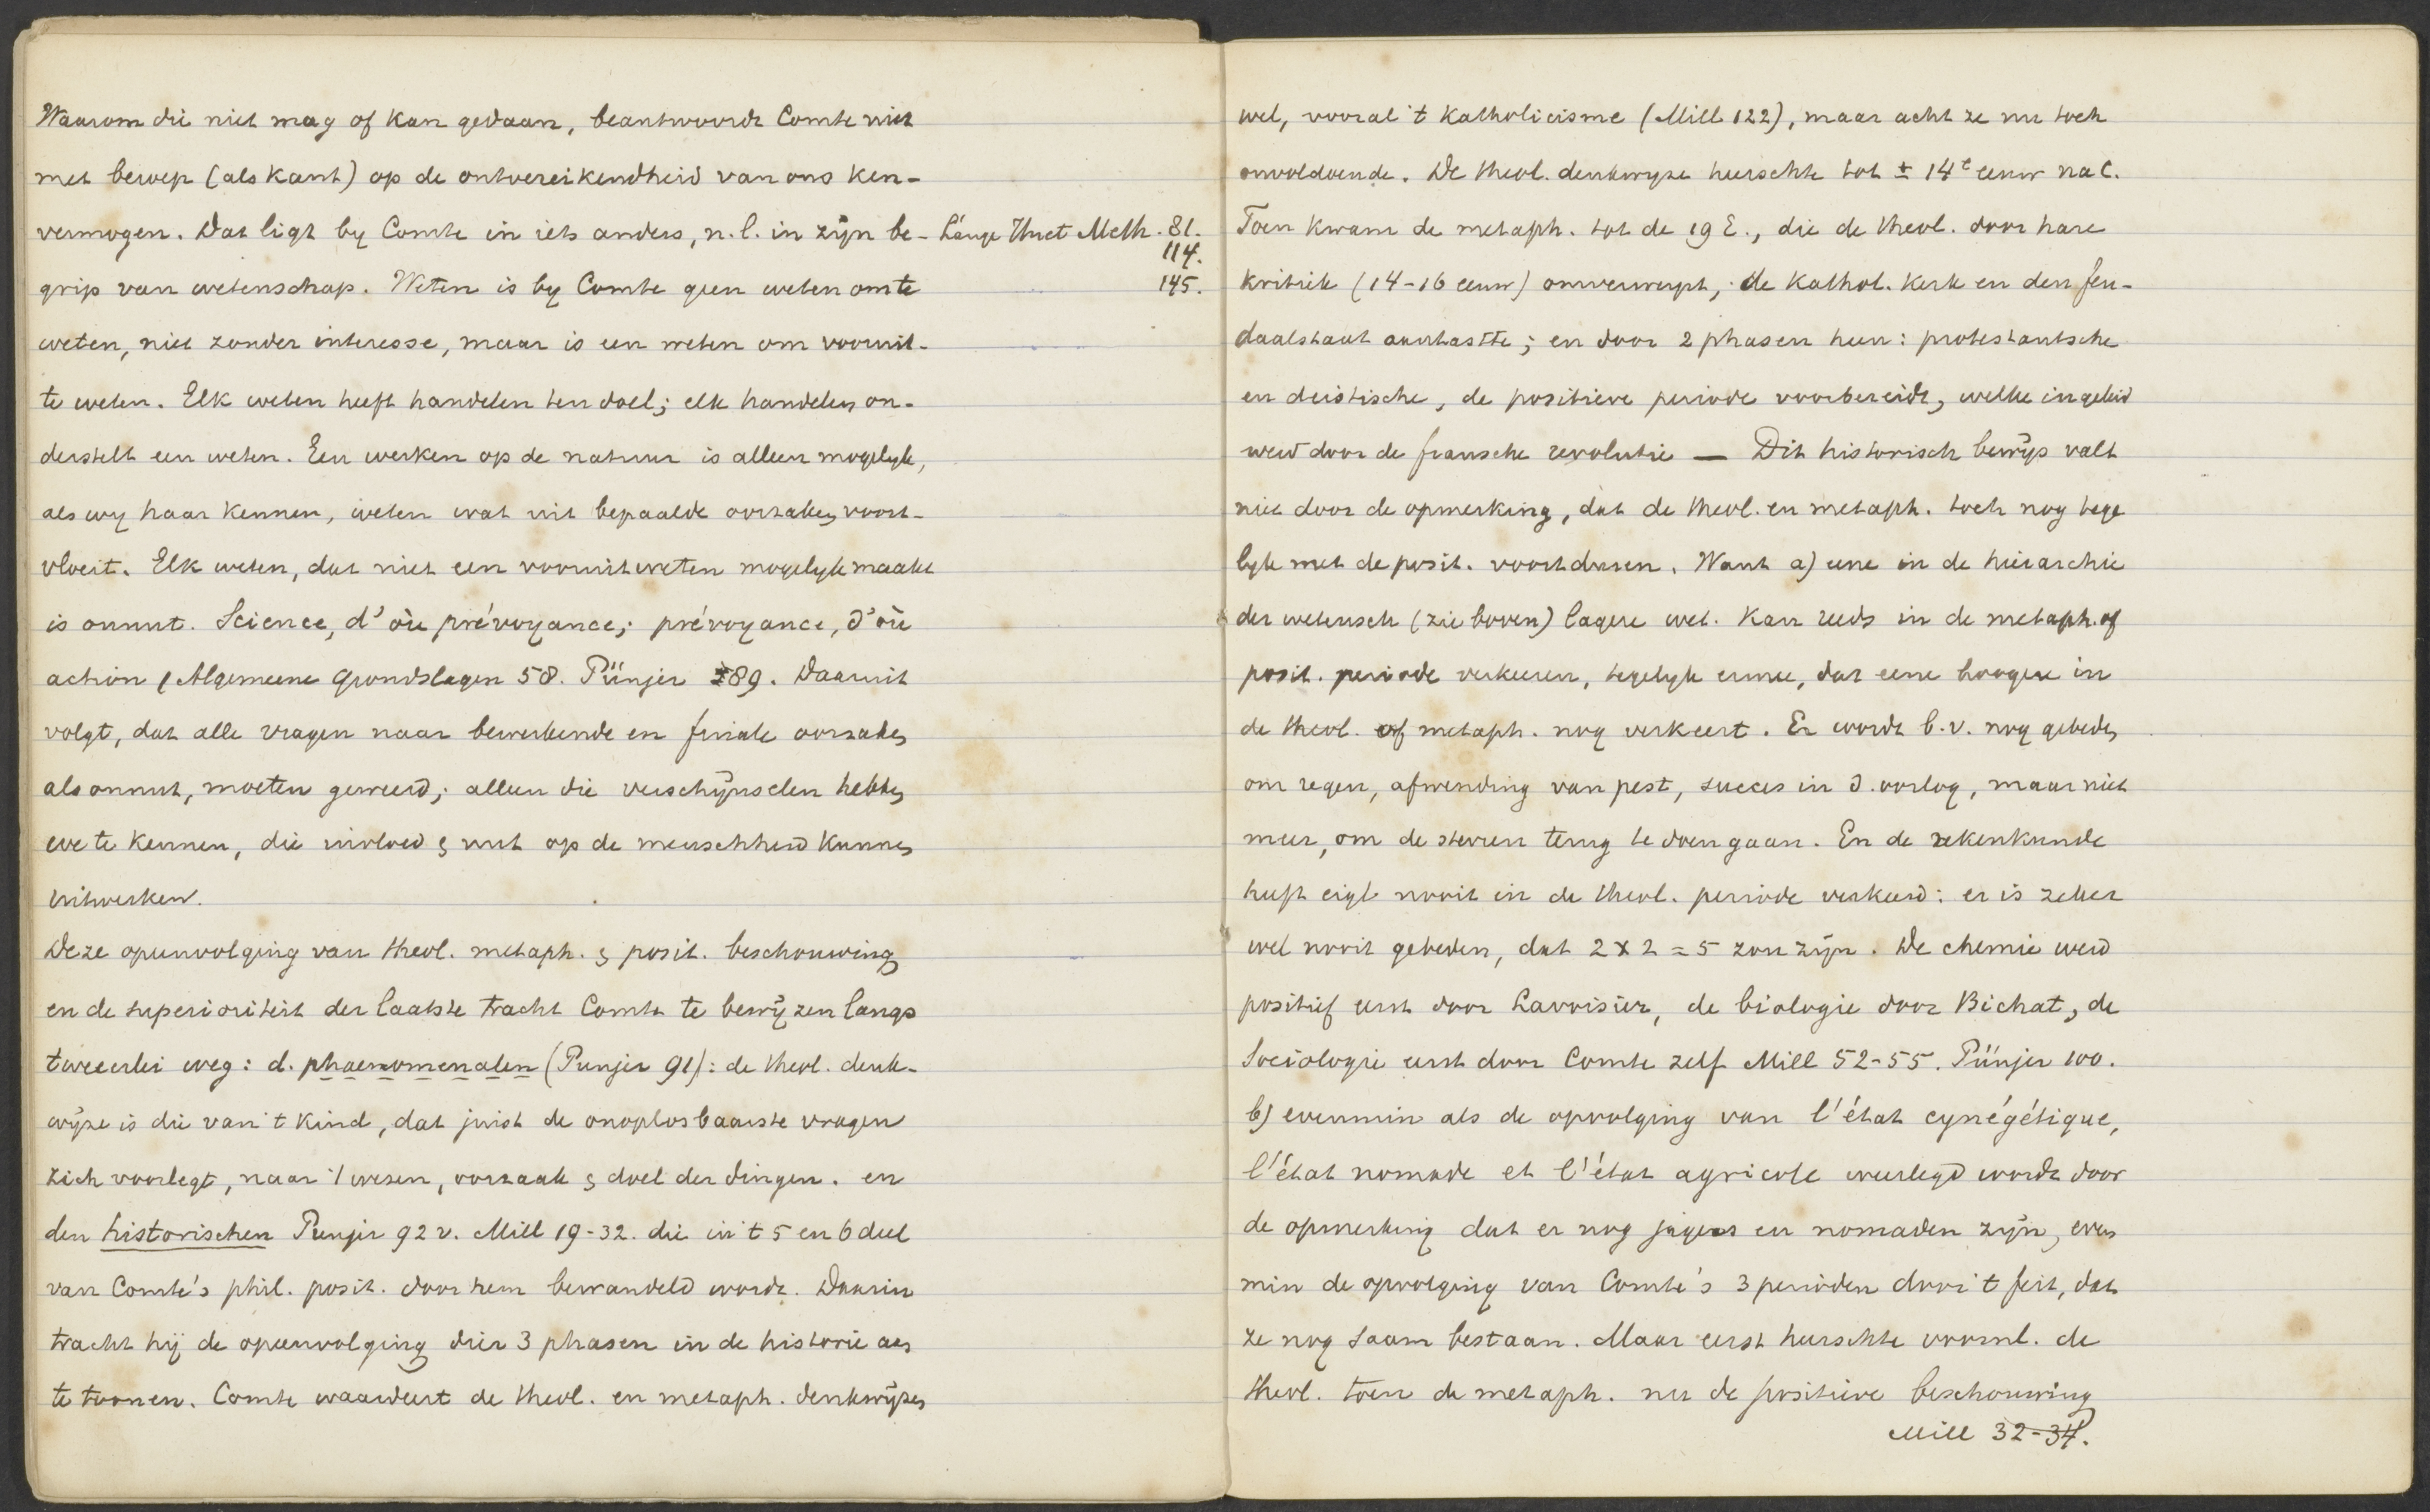 Waarom die niet mag of kan gedaan, beantwoordt Comte niet
met beroep (als Kant) op de ontoereikendheid van ons ken-
vermogen. Dat ligt by Comte in iets anders, n.l. in zijn be-
grip van wetenschap. Weten is by Comte geen weten om te
weten, niet zonder interesse, maar is een weten om vooruit-
te weten. Elk weten heeft handelen ten doel; elk handelen on-
derstelt een weten. Een werken op de natuur is alleen mogelyk,
als wy haar kennen, weten wat uit bepaalde oorzaken voort-
vloeit. Elk weten, dat niet een vooruitweten mogelyk maakt
is onnut. Science, d'où prévoyance; prévoyance, d'où
action (Algemeene Grondslagen 58. Pünjer 89. Daaruit
volgt, dat alle vragen naar bewerkende en finale oorzaken
als onnut, moeten geweerd; alleen die verschijnselen hebben
we te kennen, die invloed & nut op de menschheid kunnen
uitwerken.
Deze opeenvolging van theol. metaph. & posit. beschouwing
en de superioriteit der laatste tracht Comte te bewijzen langs
tweeerlei weg: d. phaenomenalen (Punjer 91): de theol. denk-
wijze is die van 't kind, dat juist de onoplosbaarste vragen
zich voorlegt, naar 't wezen, oorzaak & doel der dingen. en
den historischen Punjer 92 v. Mill 19-32. die in 't 5 en 6 deel
van Comte's phil. posit. door hem bewandeld wordt. Daarin
tracht hij de opeenvolging dier 3 phasen in de historie aan
te toonen. Comte waardeert de theol. en metaph. denkwijzen
Lange Meth. 81.
114.
145.
wel, vooral 't Katholicisme (Mill 122), maar acht ze nu toch
onvoldoende. De theol. denkwyze heerschte tot ± 14e eeuw na C.
Toen kwam de metaph. tot de 19 E., die de theol. door hare
kritiek (14-16 eeuw) omverwerpt, de Kathol. Kerk en den feu-
daalstaat aantastte; en door 2 phasen heen: protestantsche
en deistische, de positieve periode voorbereidt, welke ingeleid
werd door de fransche revolutie — Dit historisch bewijs valt
niet door de opmerking, dat de theol. en metaph. toch nog tege
lyk met de posit. voortduren. Want a) eene in de hierarchie
der wetensch (zie boven) lagere wet. kan reeds in de metaph. of
posit. periode verkeeren, tegelyk ermee, dat eene hoogere in
de theol. of metaph. nog verkeert. Er wordt b.v. nog gebeden
om regen, afwending van pest, succes in d. oorlog, maar niet
meer, om de sterren terug te doen gaan. En de rekenkunde
heeft eigl nooit in de theol. periode verkeerd: er is zeker
wel nooit gebeden, dat 2 x 2 = 5 zou zijn. De chemie werd
positief eerst door Lavoisier, de biologie door Bichat, de
Sociologie eerst door Comte zelf Mill 52-55. Pünjer 100.
b) evenmin als de opvolging van l'état cynégétique,
l'état nomade et l'état agricole weerlegd wordt door
de opmerking dat er nog jagers en nomaden zijn, even
min de opvolging van Comte's 3 perioden door 't feit, dat
ze nog saam bestaan. Maar eerst heerschte voornl. de
theol. toen de metaph. nu de positieve beschouwing
Mill 32-34.